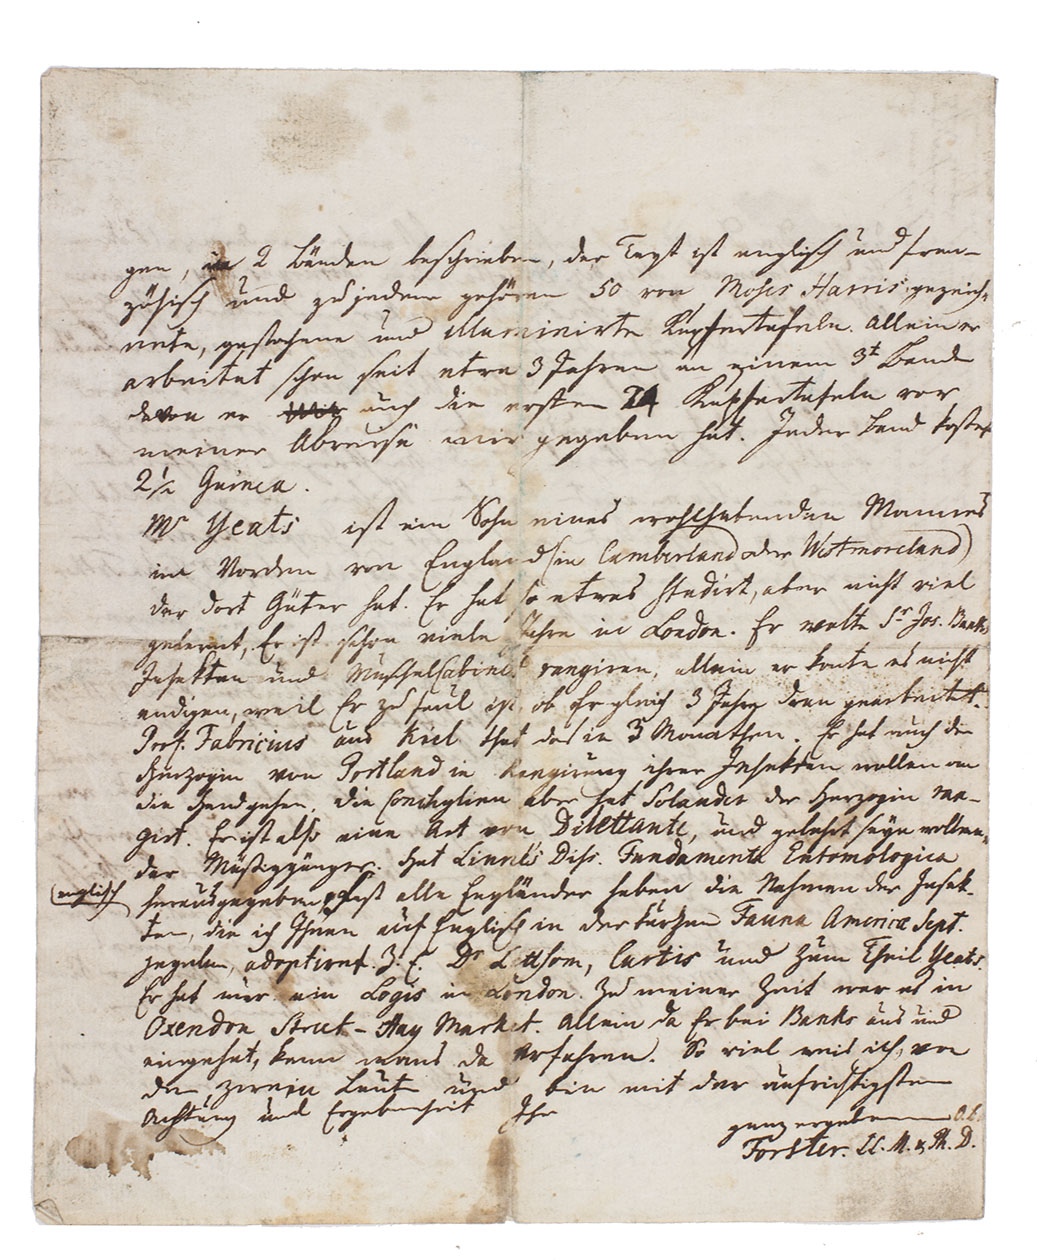 gen, in 2 Bänden beschrieben, der Text ist englisch und fran-
zösisch und zu jedem gehören 50 von Moses Harris gezeich-
nete, gestochene und illuminirte Kupfertafeln. Allein er
arbeitet schon seit etwa 3 Jahren an einem 3t Bande
davon er auch die ersten 24 Kupfertafeln vor
meiner Abreise mir gegeben hat. Jeder Band kostet
2½ Guinea.
Mr Yeats ist ein Sohn eines wohlhabenden Mannes
im Norden von England (in Cumberland oder Westmoreland)
der dort Güter hat. Er hat so etwas studirt, aber nicht viel
gelernt, Er ist schon viele Jahre in London. Er wolte Sr Jos. Banks
Insekten und Muschelcabinet rangiren, allein er konte es nicht
endigen, weil Er zu faul ist, ob Er gleich 3 Jahre dran gearbeitet.
Prof. Fabricius aus Kiel that das in 3 Monathen. Er hat auch der
Herzogin von Portland in Rangirung ihrer Insekten wollen an
die Hand gehen, die Conchylien aber hat Solander der Herzogin ran-
girt. Er ist also eine Art von Dilettante, und gelehrt seyn wollen-
der Müßiggänger. Hat Linné's Diss. Fundamenta Entomologica
englisch
herausgegeben, fast alle Engländer haben die Nahmen der Insek-
ten, die ich Ihnen auf Englisch in der kurzen Fauna Americæ Sept.
gegeben, adoptiret. Z. E. Dr Lettsom, Curtis und zum Theil Yeats.
Er hat nur ein Logis in London. Zu meiner Zeit war es in
Oxendon Street - Hay Market. Allein da Er bei Banks aus und
eingehet, kann mans da erfahren. So viel weis ich, von
den zween Leuten und bin mit der aufrichtigsten
Achtung und Ergebenheit Ihr
ganz ergebener
Forster. LL. M. & Ph. D.